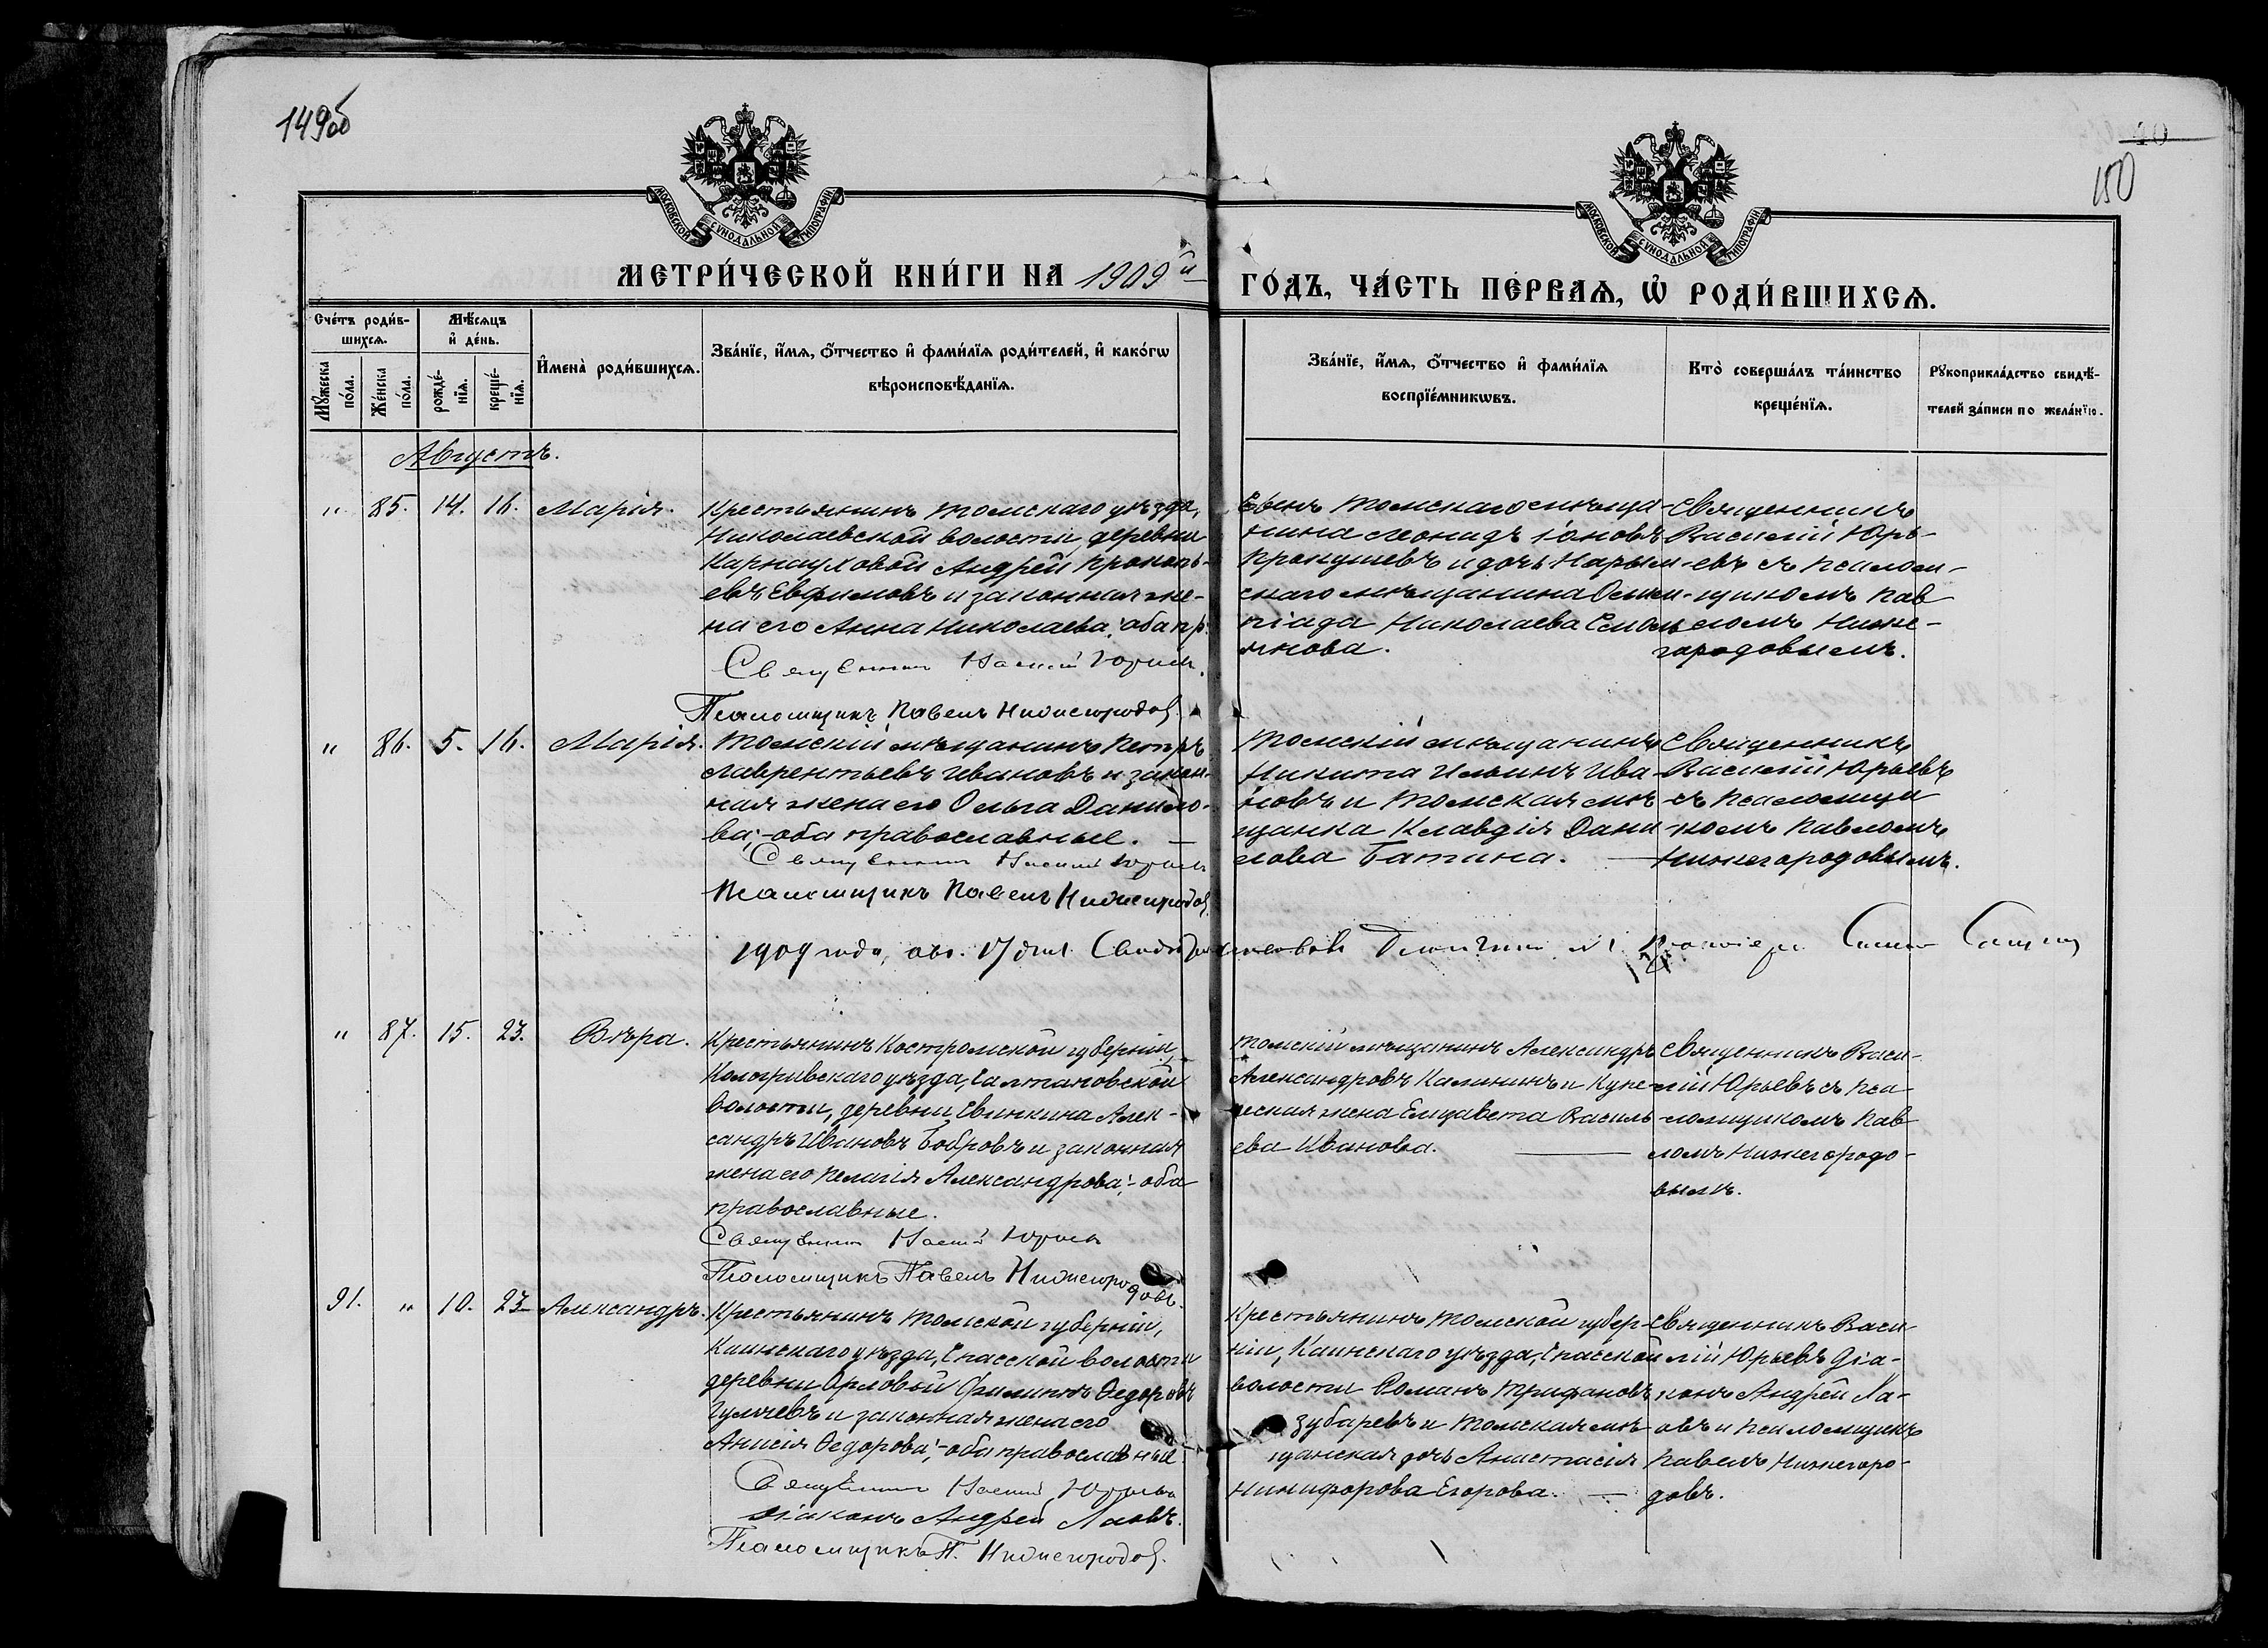 149об
40
150
МОСКОВСКОЙ СѴНОДАЛЬНОЙ ТИПОГРАФІИ
МОСКОВСКОЙ СѴНОДАЛЬНОЙ ТИПОГРАФІИ
МЕТРИ́ЧЕСКОЙ КНИ́ГИ НА 1909й
ГО́ДЪ, ЧА́СТЬ ПЕ́РВАѦ, Ѡ҆ РОДИ́ВШИХСѦ.
Сче́тъ роди́в-
шихсѧ.
Мꙋ́жеска по́ла.
Же́нска по́ла.
Мѣ́сѧцъ
и҆ де́нь.
рожде́-
нїѧ.
креще́-
нїѧ.
И҆мена̀ роди́вшихсѧ.
Зва́нїе, и҆́мѧ, ѻ҆́тчество и҆ фами́лїѧ роди́телей, и҆ како́гѡ
вѣроисповѣ́данїѧ.
Зва́нїе, и҆́мѧ, ѻ҆́тчество и҆ фами́лїѧ
воспрїе́мникѡвъ.
Кто̀ соверша́лъ та́инство
креще́нїѧ.
Рꙋкоприкла́дство свидѣ́-
телей за́писи по жела́нїю.
Августъ.
" 85. 14. 16. Марія.
Крестьянинъ Томскаго уѣзда,
Николаевской волости, деревни
Карнауховой Андрей Прокопь-
евъ Ефимовъ и законная же-
на его Анна Николаева; оба пр.
Священникъ Василій Юрьевъ
Псаломщикъ Павелъ Нижегородов
Сынъ Томскаго мѣща-
нина Леонидъ Іоновъ
Прокушевъ и дочь Нарым-
скаго мѣщанина Олим-
піада Николаева Смоль
янова.
Священникъ
Василій Юрь-
евъ съ псалом-
щикомъ Пав
ломъ Ниже-
городовымъ.
" 86. 5. 16. Марія.
Томскій мѣщанинъ Петръ
Лаврентьевъ Ивановъ и закон-
ная жена его Ольга Данило-
ва; - оба православные.
Священникъ Василій Юрьевъ
Псаломщикъ Павелъ Нижегородов
Томскій мѣщанинъ
Никита Ильинъ Ива-
новъ и Томская мѣ-
щанка Клавдія Дани-
лова Батина.
Священникъ
Василій Юрьевъ
съ псаломщи
комъ Павломъ
Нижегородовымъ.
1909 года, авг. 17 дня
" 87. 15. 23. Вѣра.
Крестьянинъ Костромской губерніи,
Кологривскаго уѣзда, Салтановской
волости, деревни Свинкина Алек-
сандръ Ивановъ Бобровъ и законная
жена его Пелагія Александрова; - оба
православные.
Священникъ Василій Юрьевъ
Псаломщикъ Павелъ Нижегородовъ.
Томскій мѣщанинъ Александръ
Александровъ Калининъ и Купе-
ческая жена Елизавета Василь
ева Иванова.
Священникъ Васи-
лій Юрьевъ съ пса-
ломщикомъ Пав
ломъ Нижегородо-
вымъ.
91. " 10. 23. Александръ.
Крестьянинъ Томской губерніи,
Каинскаго уѣзда, Спасской волости
деревни Орловой Филиппъ Федоровъ
Гуляевъ и законная жена его
Анисія Федорова; - оба православные.
Священникъ Василій Юрьевъ
Діаконъ Андрей Лаовъ.
Псаломщикъ П. Нижегородов.
Крестьянинъ Томской губер-
ніи, Каинскаго уѣзда, Спасской
волости Романъ Трифановъ
Зубаревъ и Томская мѣ-
щанская дочь Анастасія
Никифорова Егорова.
Священникъ Васи-
лій Юрьевъ Діа-
конъ Андрей Ла-
овъ и псаломщикъ
Павелъ Нижегоро-
довъ.